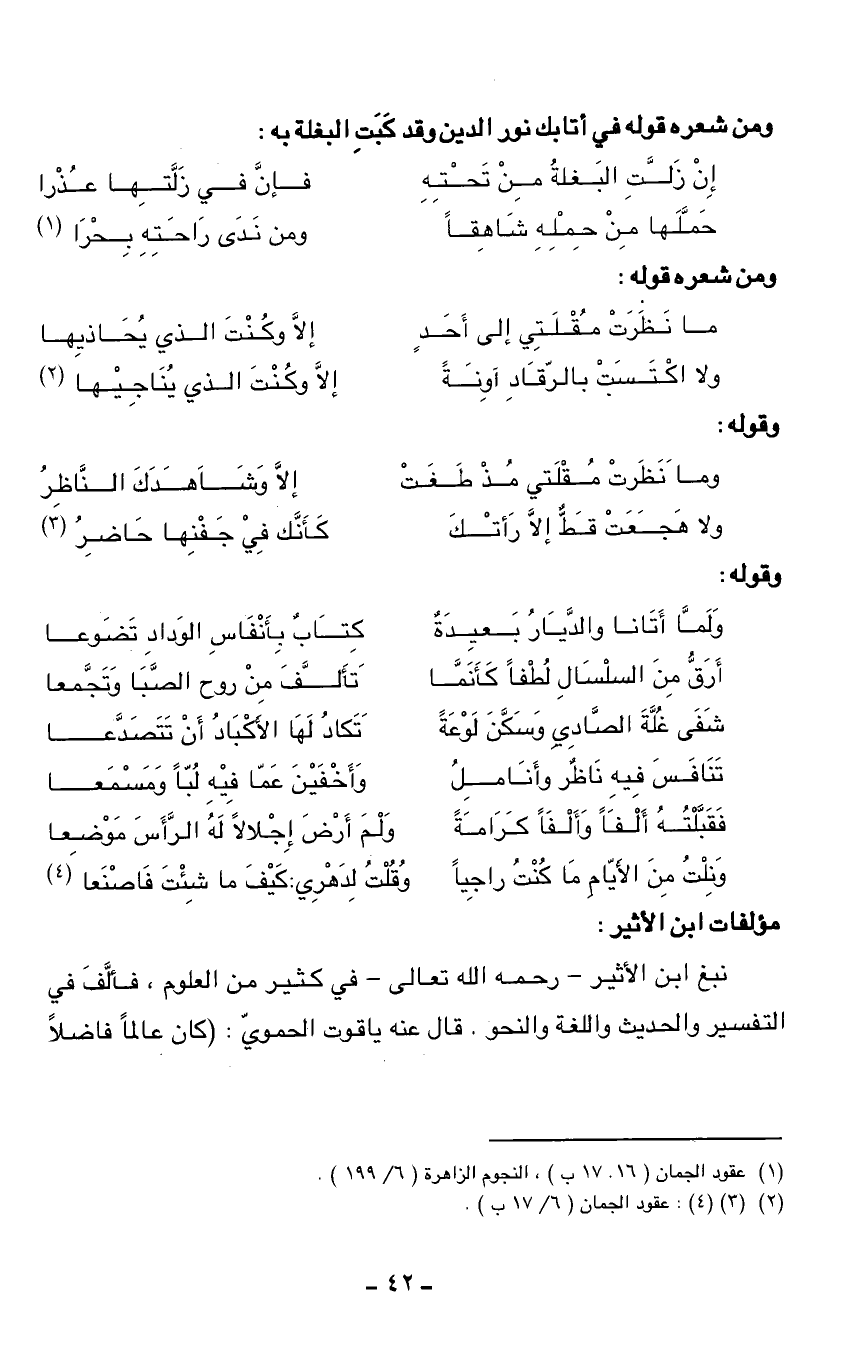 ومن شعره قوله في أتابك نور الدين وقد كَبَتِ البغلة به :
إنْ زَلَّتِ البَغلةُ مِنْ تَحْتِهِ فإنَّ في زَلَّتِها عذْرا
حَمَّلَها مِنْ حِمْلِهِ شَاهِقاً ومن نَدَى رَاحَتِهِ بحْرَا (١)
ومن شعره قوله :
ما نَظَرَتْ مقْلَتِي إلى أحَدٍ إلاَّ وكُنْتَ الذي يُحَاذيها
ولا اكْتَسَبَتْ بالرّقَادِ آونَةً إلاَّ وكُنْتَ الذي يُنَاجِيْها (٢)
وقوله :
وما نَظَرتْ مُقْلَتي مُذْ طَغَتْ إلاَّ وَشَاهَدَكَ النَّاظرُ
ولا هَجَعَتْ قطُّ إلاَّ رَأتْكَ كَأنَّك فِيْ جَفْنِها حَاضرُ (٣)
وقوله :
وَلَمَّا أتَانا والدَّيَارُ بَعيدَةٌ كتَابٌ بأنْفَاسِ الوَدادِ تَضَوعا
أرَقُّ مِنَ السلْسَالِ لُطْفاً كَأنمَّا تَألَّفَ مِنْ روحِ الصَّبَا وَتَجَّمعا
شَفَى غُلَّةَ الصَّادِي وَسَكَّنَ لَوْعَةً تَكادُ لَهَا الأكْبَادُ أنْ تَتَصَدَّعا
تَنَافَسَ فيهِ نَاظرٌ وأنَاملُ وَأخْفَيْنَ عَمّا فيْهِ لُبّاً وَمَسْمَعا
فَقَبَّلْتُه ألْفَاً وَألْفَاً كَرَامةً وَلْمَ أرْضَ إجْلالاً لَهُ الرَّأسَ مَوْضعا
وَنِلْتُ مِنَ الأيّامِ مَا كُنْتُ راجياً وَقُلْتُ لدَهْرِي:كَيْفَ ما شئْتَ فَاصنْعَا (٤)
مؤلفات ابن الأثير :
نبغ ابن الأثير - رحمه الله تعالى - في كثير من العلوم ، فألَّفَ في
التفسير والحديث واللغة والنحو . قال عنه ياقوت الحمويّ : (كان عالماً فاضلاً
(١) عقود الجمان ( ١٦. ١٧ ب ) ، النجوم الزاهرة ( ٦/ ١٩٩ ) .
(٢) (٣) (٤) : عقود الجمان ( ٦/ ١٧ ب ) .
- ٤٢ -